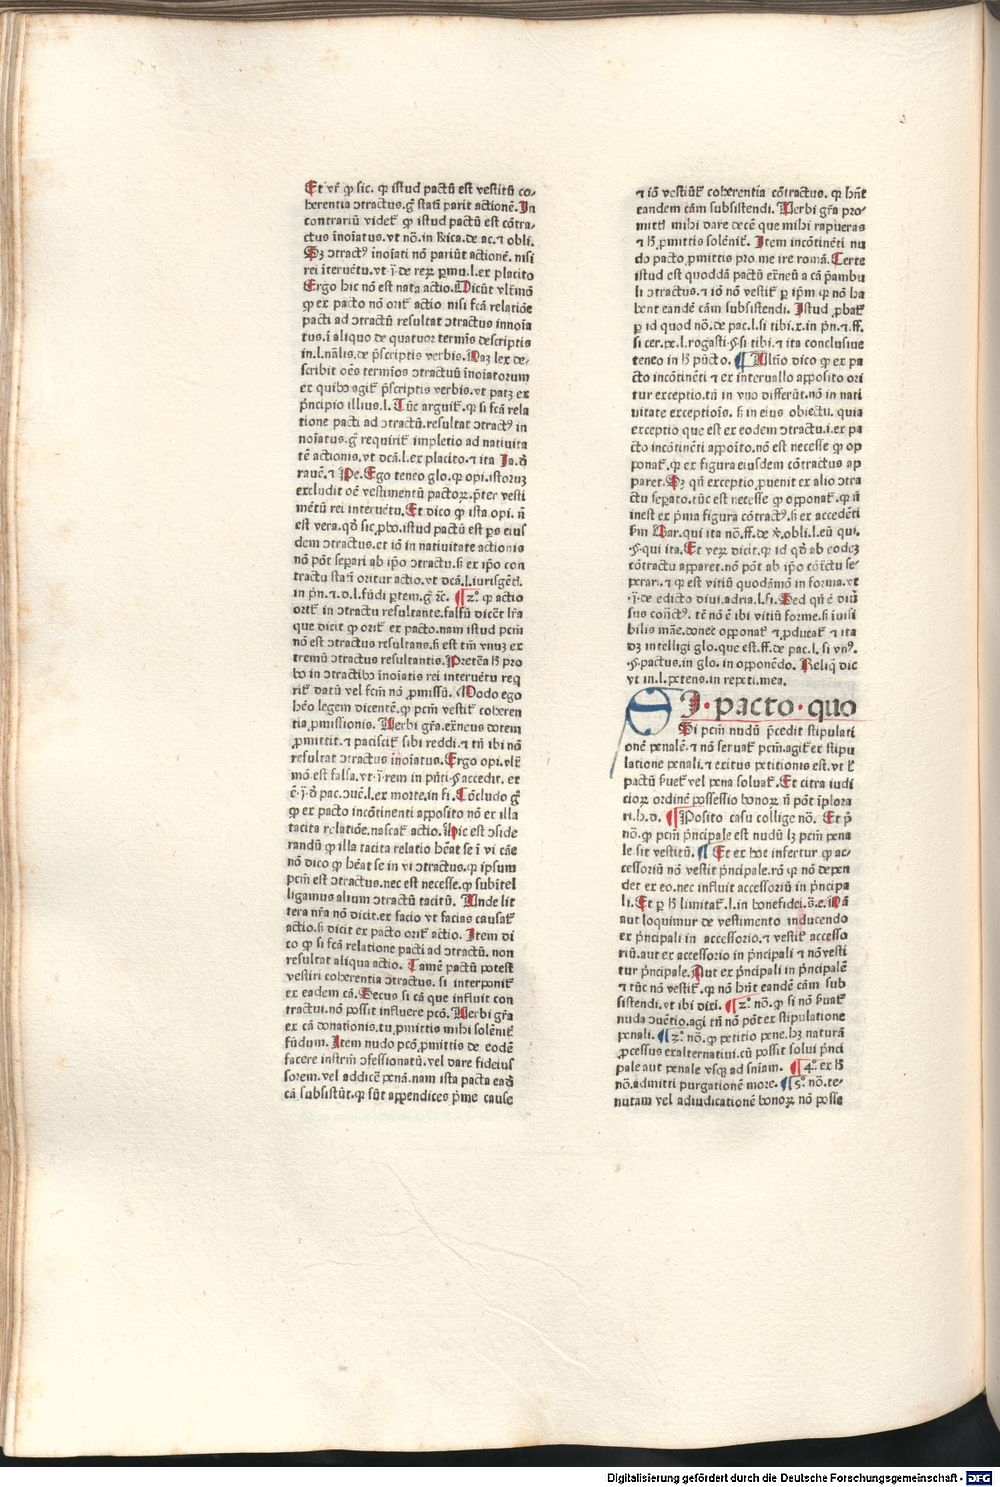 Et vr̄ ꝙ sic. qꝛ istud pactū est vestitū co-
herentia ↄtractus.g̊ statī parit actionē. In
contrariū videt᷑ ꝙ istud pactū est cōtra-
ctus īnoīatus. vt nō. in Rica. de ac. ⁊ obli.
Sꝫ ↄtractꝰ īnoīati nō pariūt actionē. nisi
rei īteruētu. vt ī. de reꝝ ꝑmu. l. ex placito
Ergo hic nō est nata actio. Dicūt vltīmō
ꝙ ex pacto nō orit᷑ actio nisi fcā relatiōe
pacti ad ↄtractū resultat ↄtractus innoīa
tus. ī aliquo de quatuoꝛ termīs descriptis
in. l. nālis. de p̄scriptis verbis. Naꝫ lex de-
scribit oēs termīos ↄtractuū īnoīatorum
ex quibꝰ agit᷑ p̄scriptis verbis. vt patꝫ ex
p̄ncipio illius. l. Tūc arguit᷑. ꝙ si fcā rela
tione pacti ad ↄtractū. resultat ↄtractꝰ in
noīatus. g̊ requirit᷑ impletio ad natiuita
tē actionis. vt dcā. l. ex placito. ⁊ ita Ja. d̄
rauē. ⁊ Pe. Ego teneo glo. ꝙ opi. istoruꝫ
excludit oē vestimentū pactoꝝ. p̄ter vesti
mētū rei interuētu. Et dico ꝙ ista opi. n̄
est vera. qð sic ꝓbo. istud pactū est ꝑs eius
dem ↄtractus. et iō in natiuitate actionis
nō pōt separi ab ip̄o ↄtractu. s̄ ex ip̄o con
tractu statī oritur actio. vt dcā. l. iurisgētī.
in p̄n. ⁊. d. l. fūdi ꝑtem. g̊ ⁊c. ¶ 2°. ꝙ actio
orit᷑ in ↄtractu resultante. falsū dicēt lr̄a
que dicit ꝙ orit᷑ ex pacto. nam istud pcm̄
nō est ↄtractus resultans. s̄ est tm̄ vnuꝫ ex
tremū ↄtractus resultantis. Pretēa ħ pro
bo in ↄtractibꝰ īnoīatis rei interuētu req
rit᷑ datū vel fcm̄ nō ꝓmissū. Modo ego
hēo legem dicentē. ꝙ pcm̄ vestit᷑ coheren
tia ꝓmissionis. Verbi gr̄a. extrneus dotem
ꝓmittit. ⁊ paciscit᷑ sibi reddi. ⁊ tn̄ ibi nō
resultat ↄtractus īnoīatus. Ergo opi. vlt̄
mō est falsa. vt. ī. rem in pn̄ti. §. accedit. et
ē. ī. d̄ pac. ↄuē. l. ex morte. in fi. Cōcludo g̊
ꝙ ex pacto incōtinenti apposito nō ex illa
tacita relatiōe. nascat᷑ actio. Hic est ↄside
randū ꝙ illa tacita relatio hēat se ī vi cāe
nō dico ꝙ hēat se in vi ↄtractus. ꝙ ipsum
pcm̄ est ↄtractus. nec est necesse. ꝙ subītel
ligamus alium ↄtractū tacitū. Unde lit
tera nr̄a nō dicit. ex facio vt facias causat᷑
actio. s̄ dicit ex pacto orit᷑ actio. Item di
co ꝙ si fcā relatione pacti ad ↄtractū. non
resultat aliqua actio. Tamē pactū potest
vestiri coherentia ↄtractus. si interponit᷑
ex eadem cā. Secus si cā que influit con
tractui. nō possit influere pcō. Verbi gr̄a
ex cā donationis. tu ꝓmittis mihi solēnit᷑
fūdum. Item nudo pcō ꝓmittis de eodē
facere instrm̄ ↄfessionatū. vel dare fideius
sorem. vel addicē penā. nam ista pacta eađ
cā subsistūt. ꝙ sūt appendices p̄me cause
⁊ iō vestiūt᷑ coherentia cōtractus. ꝙ hn̄t
eandem cām subsistendi. Verbi gr̄a pro-
mittī mihi dare decē que mihi rapueras
⁊ ħ ꝓmittis solēnit᷑. Item incōtinēti nu
do pacto ꝓmittis pro me ire romā. Certe
istud est quoddā pactū extrneū a cā p̄ambu
li ↄtractus. ⁊ iō nō vestit᷑ ꝑ ip̄m ꝙ nō ha
bent eandē cām subsistendi. Istud ꝓbat᷑
ꝑ id quod nō. de pac. l. si tibi. x. in p̄n. ⁊. ff.
si cer. pe. l. rogasti. §. si tibi. ⁊ ita conclusiue
teneo in ħ pūcto. ¶ Ultīo dico ꝙ ex pa
cto incōtinēti ⁊ ex interuallo apposito ori
tur exceptio. tn̄ in vno differūt. nō in nati
uitate exceptiois. s̄ in eius obiectu. quia
exceptio que est ex eodem ↄtractu. i. ex pa
cto incōtinēti appoīto. nō est necesse ꝙ op
ponat᷑. ꝙ ex figura eiusdem cōtractus ap
paret. Sꝫ qn̄ exceptio ꝓuenit ex alio ↄtra
ctu separato. tūc est necesse ꝙ opponat᷑. ꝙ n̄
inest ex p̄ma figura cōtractꝰ. s̄ ex accedēti
ẜm Bar. qui ita nō. ff. de v̄. obli. l. eū qui.
§. qui ita. Et veꝝ dicit. ꝙ id qð ab eodeꝫ
cōtractu apparet. nō pōt ab ip̄o cōtctu se-
perari. ⁊ ꝙ est vitiū quodāmō in forma. vt
ī. de edicto diui. adria. l. fi. Sed qn̄ ē diū
sus con̄ctꝰ. tē nō ē ibi vitiū forme. s̄ īuisi
bilis māe. donec opponat᷑ ⁊ ꝓducat᷑ ⁊ ita
dꝫ intelligi glo. que est. ff. de pac. l. si vnꝰ.
§. pactus. in glo. in opponēdo. Reliq̄ dic
vt in. l. petens. in repeti. mea.
SI. pacto. quo
Si pcm̄ nudū p̄cedit stipulati
onē penalē. ⁊ nō seruat᷑ pcm̄. agit᷑ ex stipu
latione penali. ⁊ exitus petitionis est. vt ł
pactū ẜuet᷑ vel pena soluat᷑. Et citra iudi
cioꝝ ordinē possessio bonoꝝ n̄ pōt īplora
ri. h. d. ¶ Posito casu collige nō. Et p̄
nō. ꝙ pcm̄ p̄ncipale est nudū lꝫ pcm̄ pena
le sit vestitū. ¶ Et ex hoc infertur ꝙ ac-
cessoriū nō vestit p̄ncipale. rō ꝙ nō depen
det ex eo. nec influit accessoriū in p̄ncipa
li. Et ꝑ ħ limitat᷑. l. in bonefidei. s̄. e. Nā
aut loquimur de vestimento inducendo
ex p̄ncipali in accessorio. ⁊ vestit᷑ accesso
riū. aut ex accessorio in p̄ncipali ⁊ nō vesti
tur p̄ncipale. Aut ex p̄ncipali in p̄ncipalē
⁊ tūc nō vestit᷑. ꝙ nō hn̄t eandē cām sub
sistendi. vt ibi dixi. ¶ 2°. nō. ꝙ si nō ẜuat᷑
nuda ↄuētio. agi tn̄ nō pōt ex stipulatione
penali. ¶ 2°. nō. ꝙ petitio pene. hꝫ naturā
ꝓcessus exalternatiui. cū possit solui p̄nci
pale aut penale vsqꝫ ad sn̄iam. ¶ 4°. ex ħ
nō. admitti purgationē more. ¶ 5°. nō. te-
nutam vel adiudicationē bonoꝝ nō posse
Digitalisierung gefördert durch die Deutsche Forschungsgemeinschaft - DFG